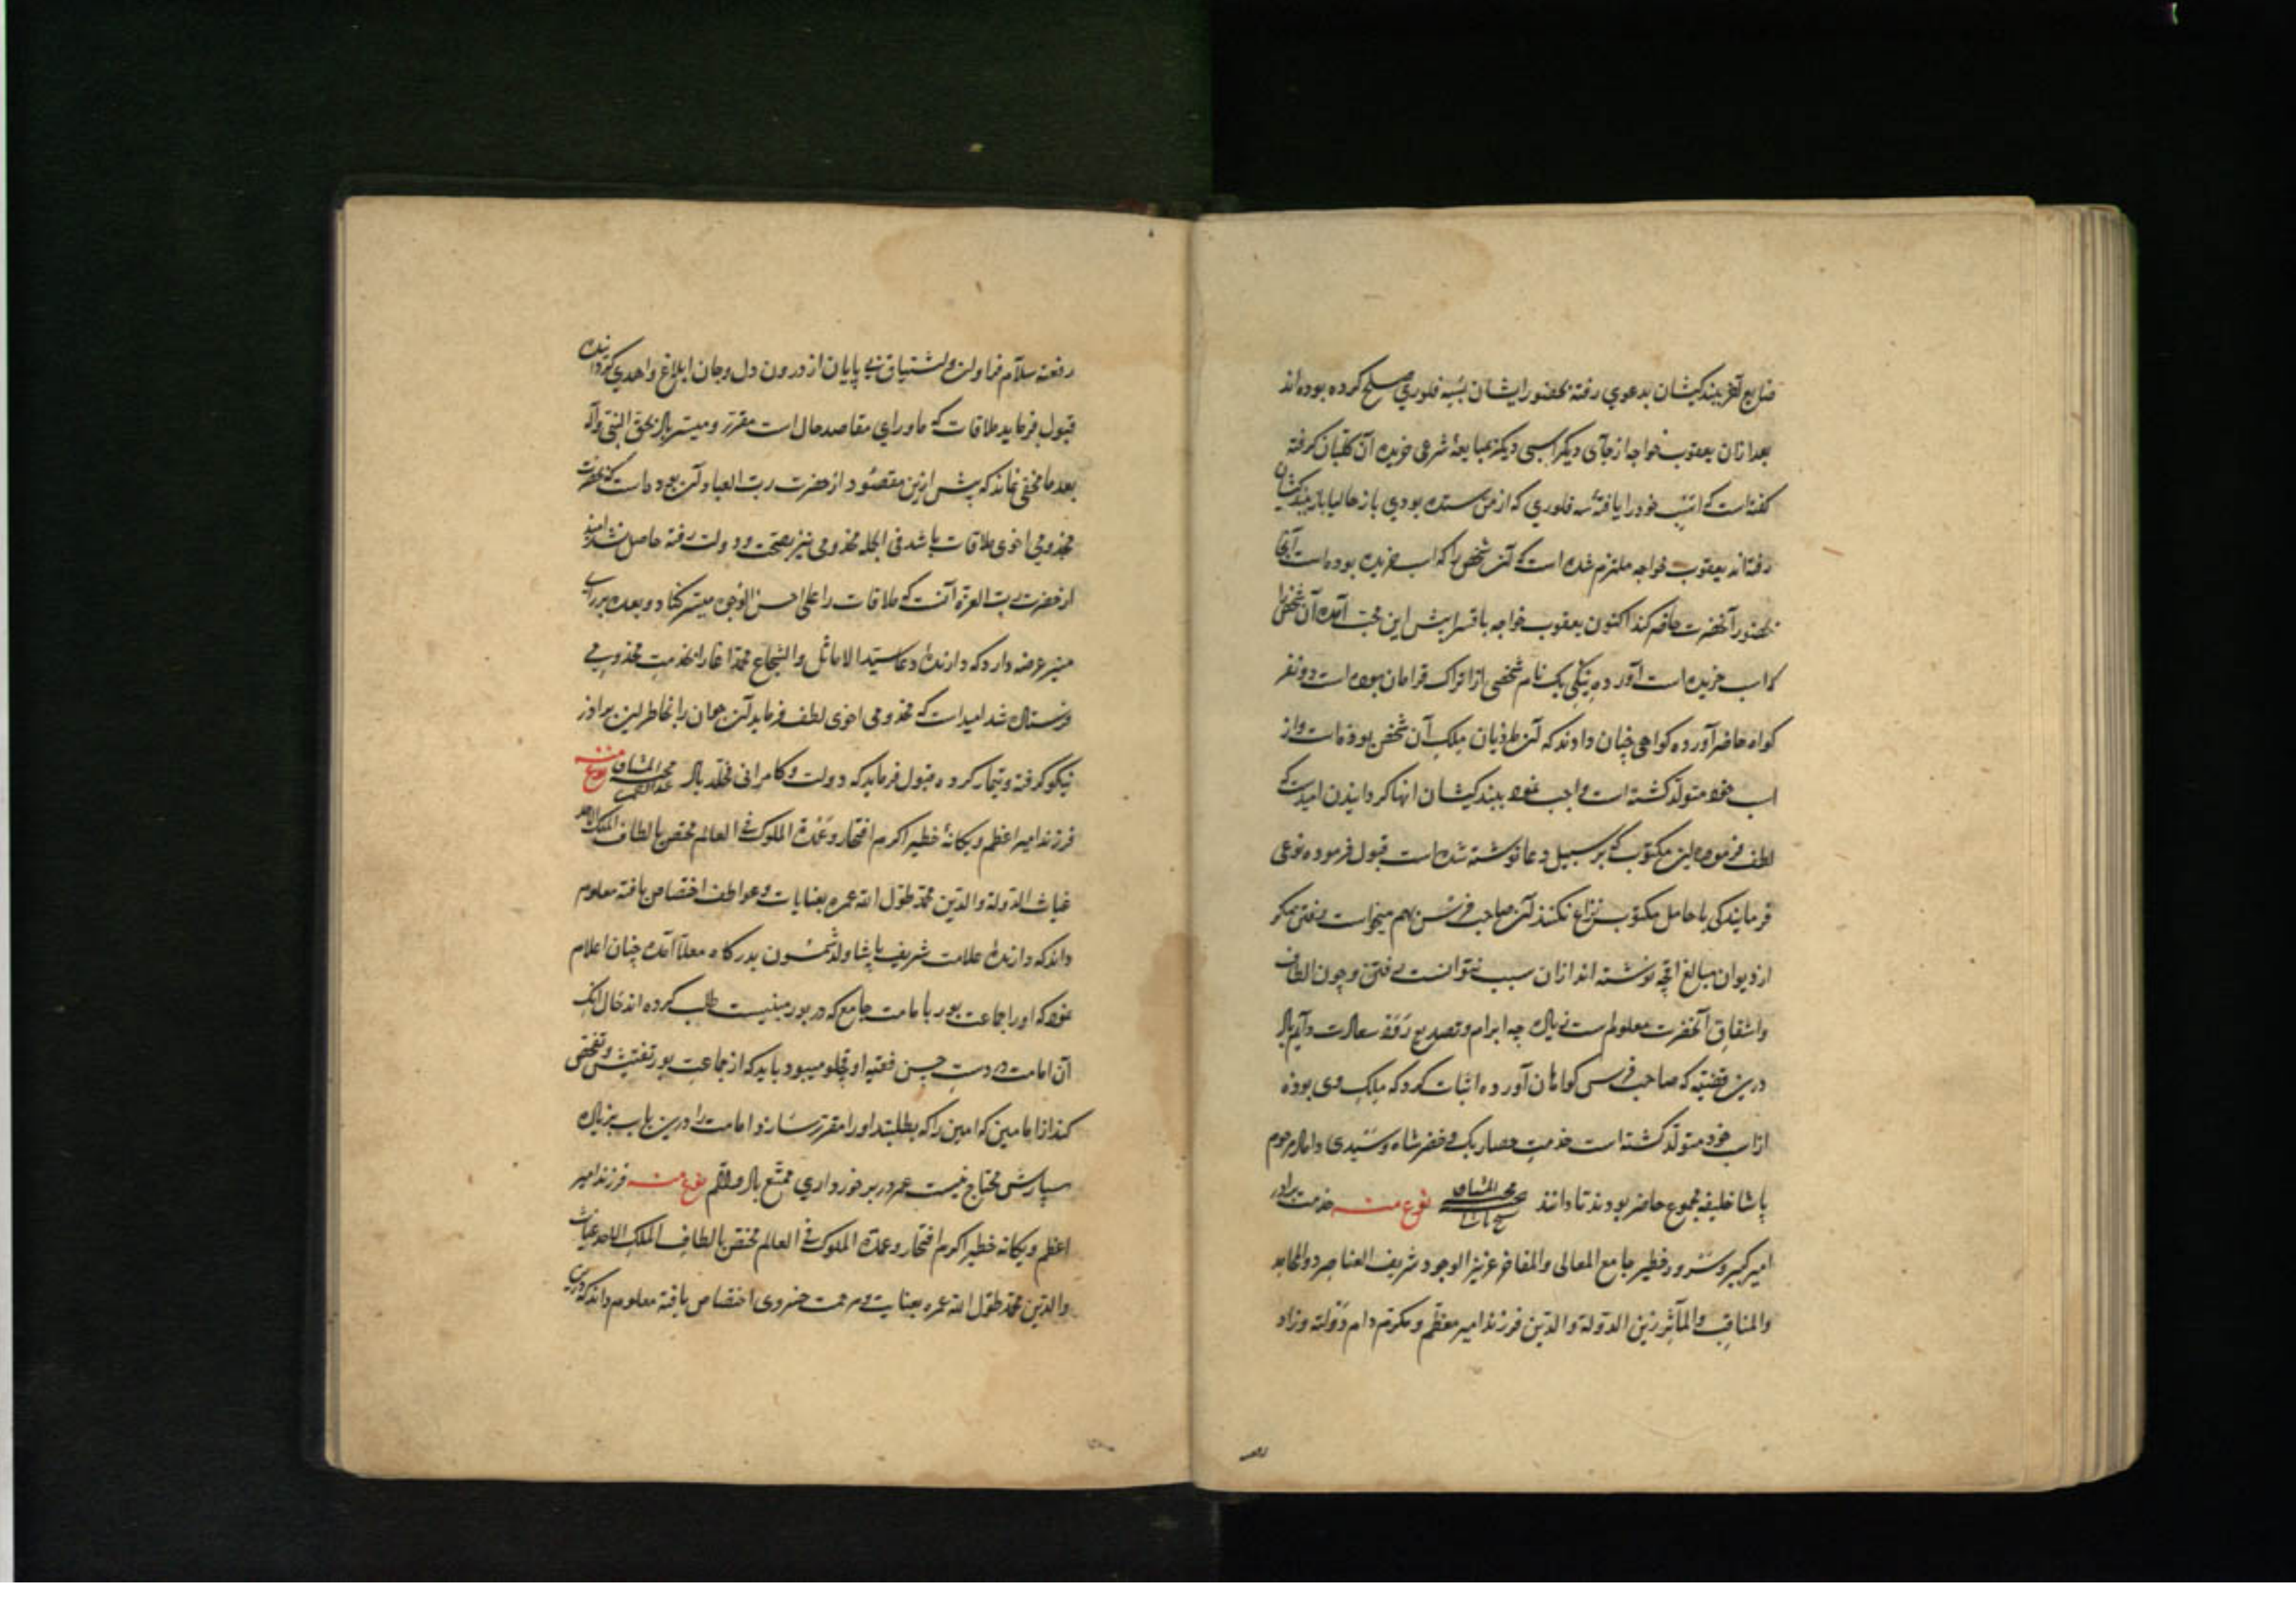 بعد ازان یعقوب خواجه از جای دیکر اسبی دیکر بمبایعهٔ شرعی خریده آن قلتبان کرفته
کفته است که اسب خود را یافتهٔ سه فلوری که از من ستده بودی باز
رفته اند یعقوب خواجه ملتزم شده است که آن شخص را که اسب خریده بوده است
بحضور آنحضرت حاضر کند اکنون یعقوب خواجه با این محب آمده آن شخص را
که اسب خریده است آورده بیک نام شخصی از اتراک قرامان بوده است دو نفر
کواه حاضر آورده کواهی چنان دادند که آن ملک آن شخص بوده است و از
اسب خود متولد کشته است واجب نمود ببندکیشان انها کردانیدن امیدست که
لطف فرموده این مکتوب که بر سبیل دعا نوشته شده است قبول فرموده نوعی
فرمایند کی با حامل مکتوب نزاع نکنند آن صاحب فرس هم میخواست رفتن مکر
از دیوان مبالغ اقچه نوشته اند ازان سبب نتوانست رفتن و چون الطاف
واشفاق آنحضرت معلوم است زیاده چه ابرام و تصدیع رود سعادت دایم باد
درین قضیه که صاحب فرس کواهان آورده اثبات کرد که ملک وی بوده
از اسب خود متولد کشته است خدمت حصار بک و خضر شاه و سیدی مرحوم
پاشا خلیفه مجموع حاضر بودند تا دانند محب المشتاق شیخ پاشا نوع منه خدمت برادر
امیر کبیر و سرور خطیر جامع المعالی والمفاخر عزیز الوجود شریف العناصر ذو المحامد
والمناقب والمآثر زین الدولة والدین فرزند امیر معظم و مکرم دام دولته وزاد
رفعته سلام فراوان و اشتیاق بی پایان از درون دل و جان ابلاغ و اهدی کردانیده
قبول فرماید ملاقات که ماورای مقاصد حال است مقرر و میسر باد بحق النبی وآله
بعد ما مخفی نماند که پیش ازین مقصود از حضرت رب العباد آن بوده است که بحضرت
مخدومی اخوی ملاقات باشد فی الجمله مخدومی نیز بصحت و دولت رفته حاصل نشد امید
از حضرت رب العزة آنست که ملاقات را علی احسن الوجوه میسر کناد و بعده بر رای
منیر عرضه دارد که دارندهٔ دعا سید الاماثل والشجاع محمد اغا را بخدمت مخدومی
فرستاده شد امید است که مخدومی اخوی لطف فرماید آن جوان را بخاطر این برادر
نیکو کرفته و تیمار کرده قبول فرماید که دولت و کامرانی مخلد باد محب المشتاق نوع منه
فرزند امیر اعظم و یکانهٔ خطیر اکرم افتخار و عمدة الملوک فی العالم مختص بالطاف الملک الاحد
غیاث الدولة والدین محمد طول الله عمره بعنایات و عواطف اختصاص یافته معلوم
داند که دارندهٔ علامت شریف پاشا ولد شمسون بدرکاه معلا آمده چنان اعلام
نمود که او را جماعت بور بامامت جامع که در بور مبنیست طلب کرده اند حال آنک
آن امامت در دست حسن فقیه اوغلو میبود باید که از جماعت بور تفتیش و تفحص
کند از امامین که امین را که بطلبند او را مقرر سازد امامت را درین باب بزیاده
سپارش محتاج نیست عمر در برخورداری ممتع باد والسلام نوع منه فرزند امیر
اعظم و یکانه خطیر اکرم افتخار و عمدة الملوک فی العالم مختص بالطاف الملک الاحد غیاث
والدین محمد طول الله عمره بعنایت و مرحمت خسروی اختصاص یافته معلوم داند که درین